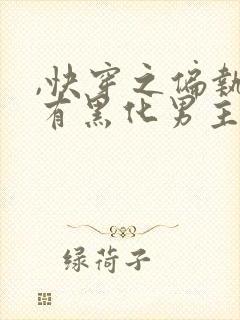 ,快穿之偏執
有黑化男主
绿荷子